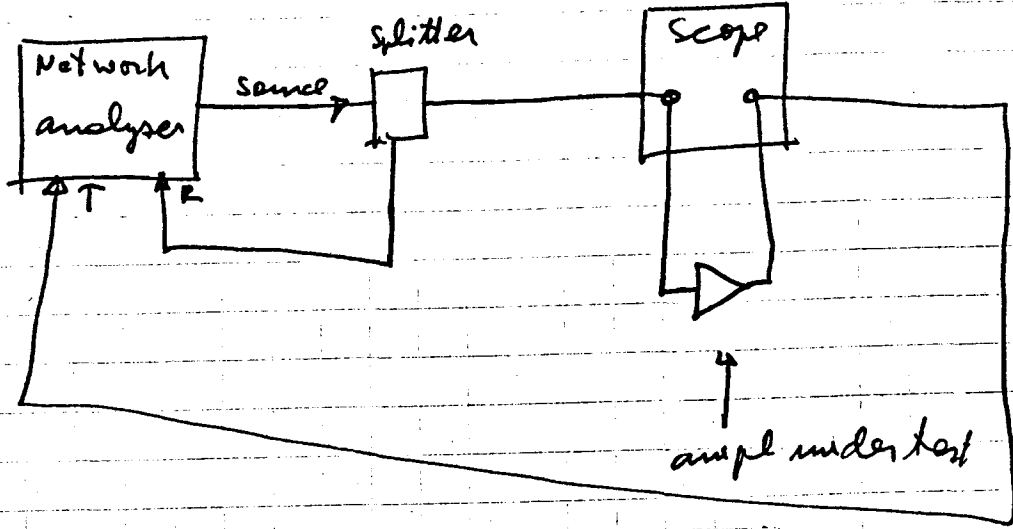 Network
analyser
source
splitter
Scope
T
R
ampl under test